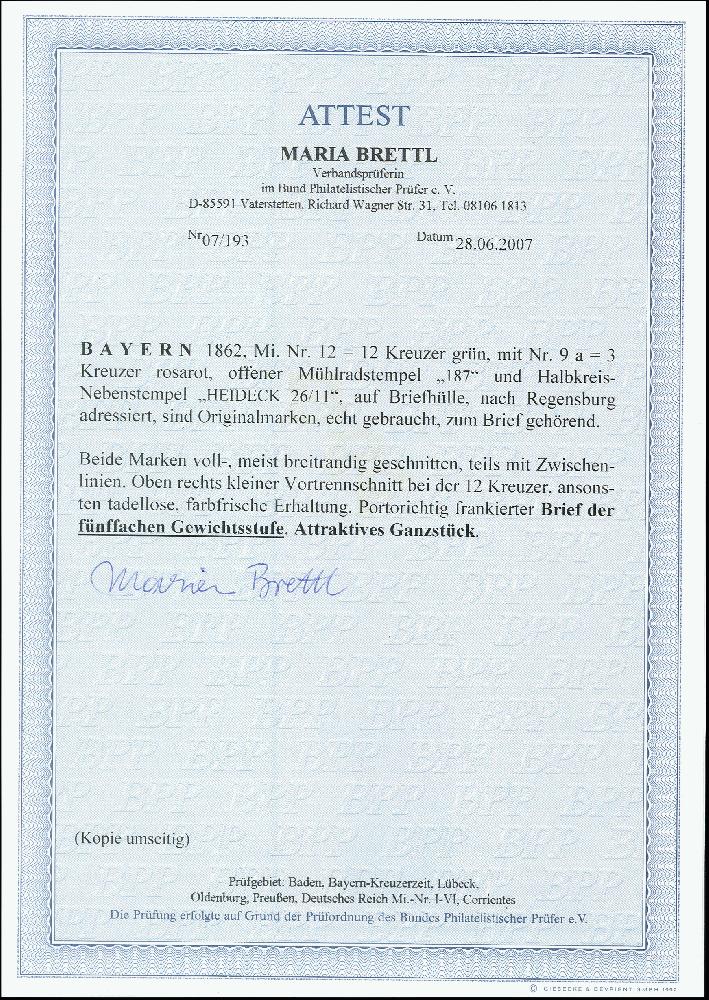 ATTEST
MARIA BRETTL
Verbandsprüferin
im Bund Philatelistischer Prüfer e. V.
D-85591 Vaterstetten, Richard Wagner Str. 31, Tel. 08106 1813
Nr 07/193 Datum 28.06.2007
BAYERN 1862, Mi. Nr. 12 = 12 Kreuzer grün, mit Nr. 9 a = 3
Kreuzer rosarot, offener Mühlradstempel „187“ und Halbkreis-
Nebenstempel „HEIDECK 26/11“, auf Briefhülle, nach Regensburg
adressiert, sind Originalmarken, echt gebraucht, zum Brief gehörend.
Beide Marken voll-, meist breitrandig geschnitten, teils mit Zwischen-
linien. Oben rechts kleiner Vortrennschnitt bei der 12 Kreuzer, ansons-
ten tadellose, farbfrische Erhaltung. Portorichtig frankierter Brief der
fünffachen Gewichtsstufe. Attraktives Ganzstück.
Maria Brettl
(Kopie umseitig)
Prüfgebiet: Baden, Bayern-Kreuzerzeit, Lübeck,
Oldenburg, Preußen, Deutsches Reich Mi.-Nr. I-VI, Corrientes
Die Prüfung erfolgte auf Grund der Prüfordnung des Bundes Philatelistischer Prüfer e.V.
© GIESECKE & DEVRIENT GMBH 1992